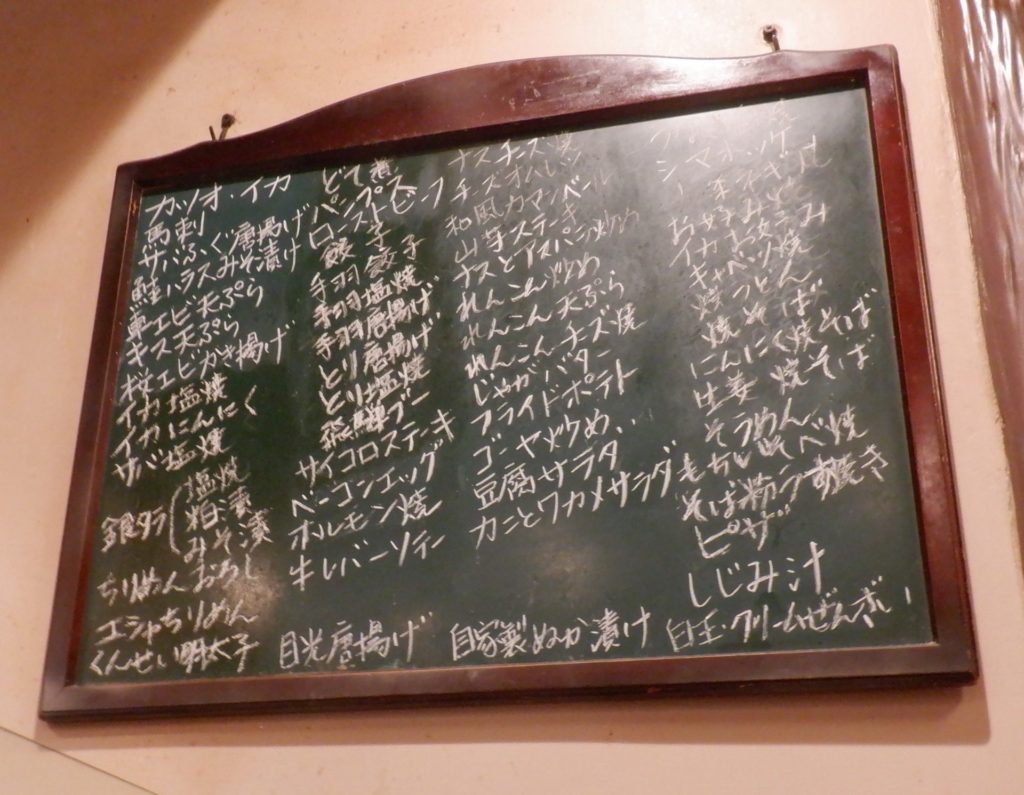 カツオ・イカ
馬刺
サバふぐ唐揚げ
鮭ハラスみそ漬け
車エビ天ぷら
キス天ぷら
桜エビかき揚げ
イカ塩焼
イカにんにく
サバ塩焼
銀タラ
塩焼
粕漬
みそ漬
ちりめんおろし
エシャちりめん
くんせい明太子
どて煮
ローストビーフ
餃子
手羽餃子
手羽塩焼
手羽唐揚げ
とり唐揚げ
とり塩焼
サイコロステーキ
ベーコンエッグ
ホルモン焼
牛レバーソテー
目光唐揚げ
ナスチーズ焼
チーズオムレツ
和風カマンベール
山芋ステーキ
ナスとアスパラ炒め
れんこん炒め
れんこん天ぷら
れんこんチーズ焼
じゃがバター
フライドポテト
ゴーヤ炒め
豆腐サラダ
カニとワカメサラダ
自家製ぬか漬け
お好み
イカお好み
キャベツ焼
焼うどん
焼そば
にんにく焼そば
生姜焼そば
そうめん
もちいそべ焼
ピザ
しじみ汁
白玉・クリームぜんざい